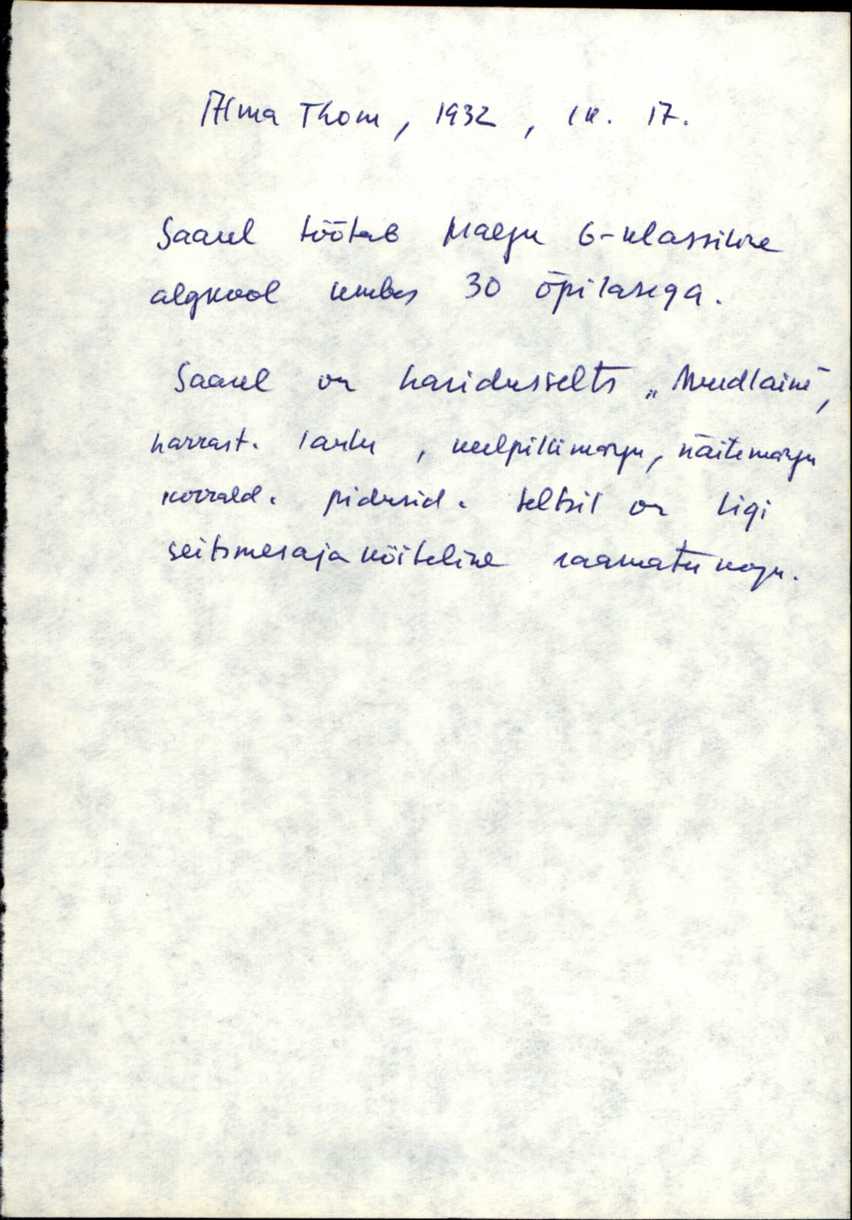 Alma Thom, 1932, lk. 17.
Saarel töötab Naegu 6-klassiline
algkool umbes 30 õpilasega.
Saarel on haridusselts „Murdlaine",
harrast. laulu, keelpillimängu, näitemängu
korrald. pidusid. Seltsil on ligi
seitsmesajaköiteline raamatukogu.